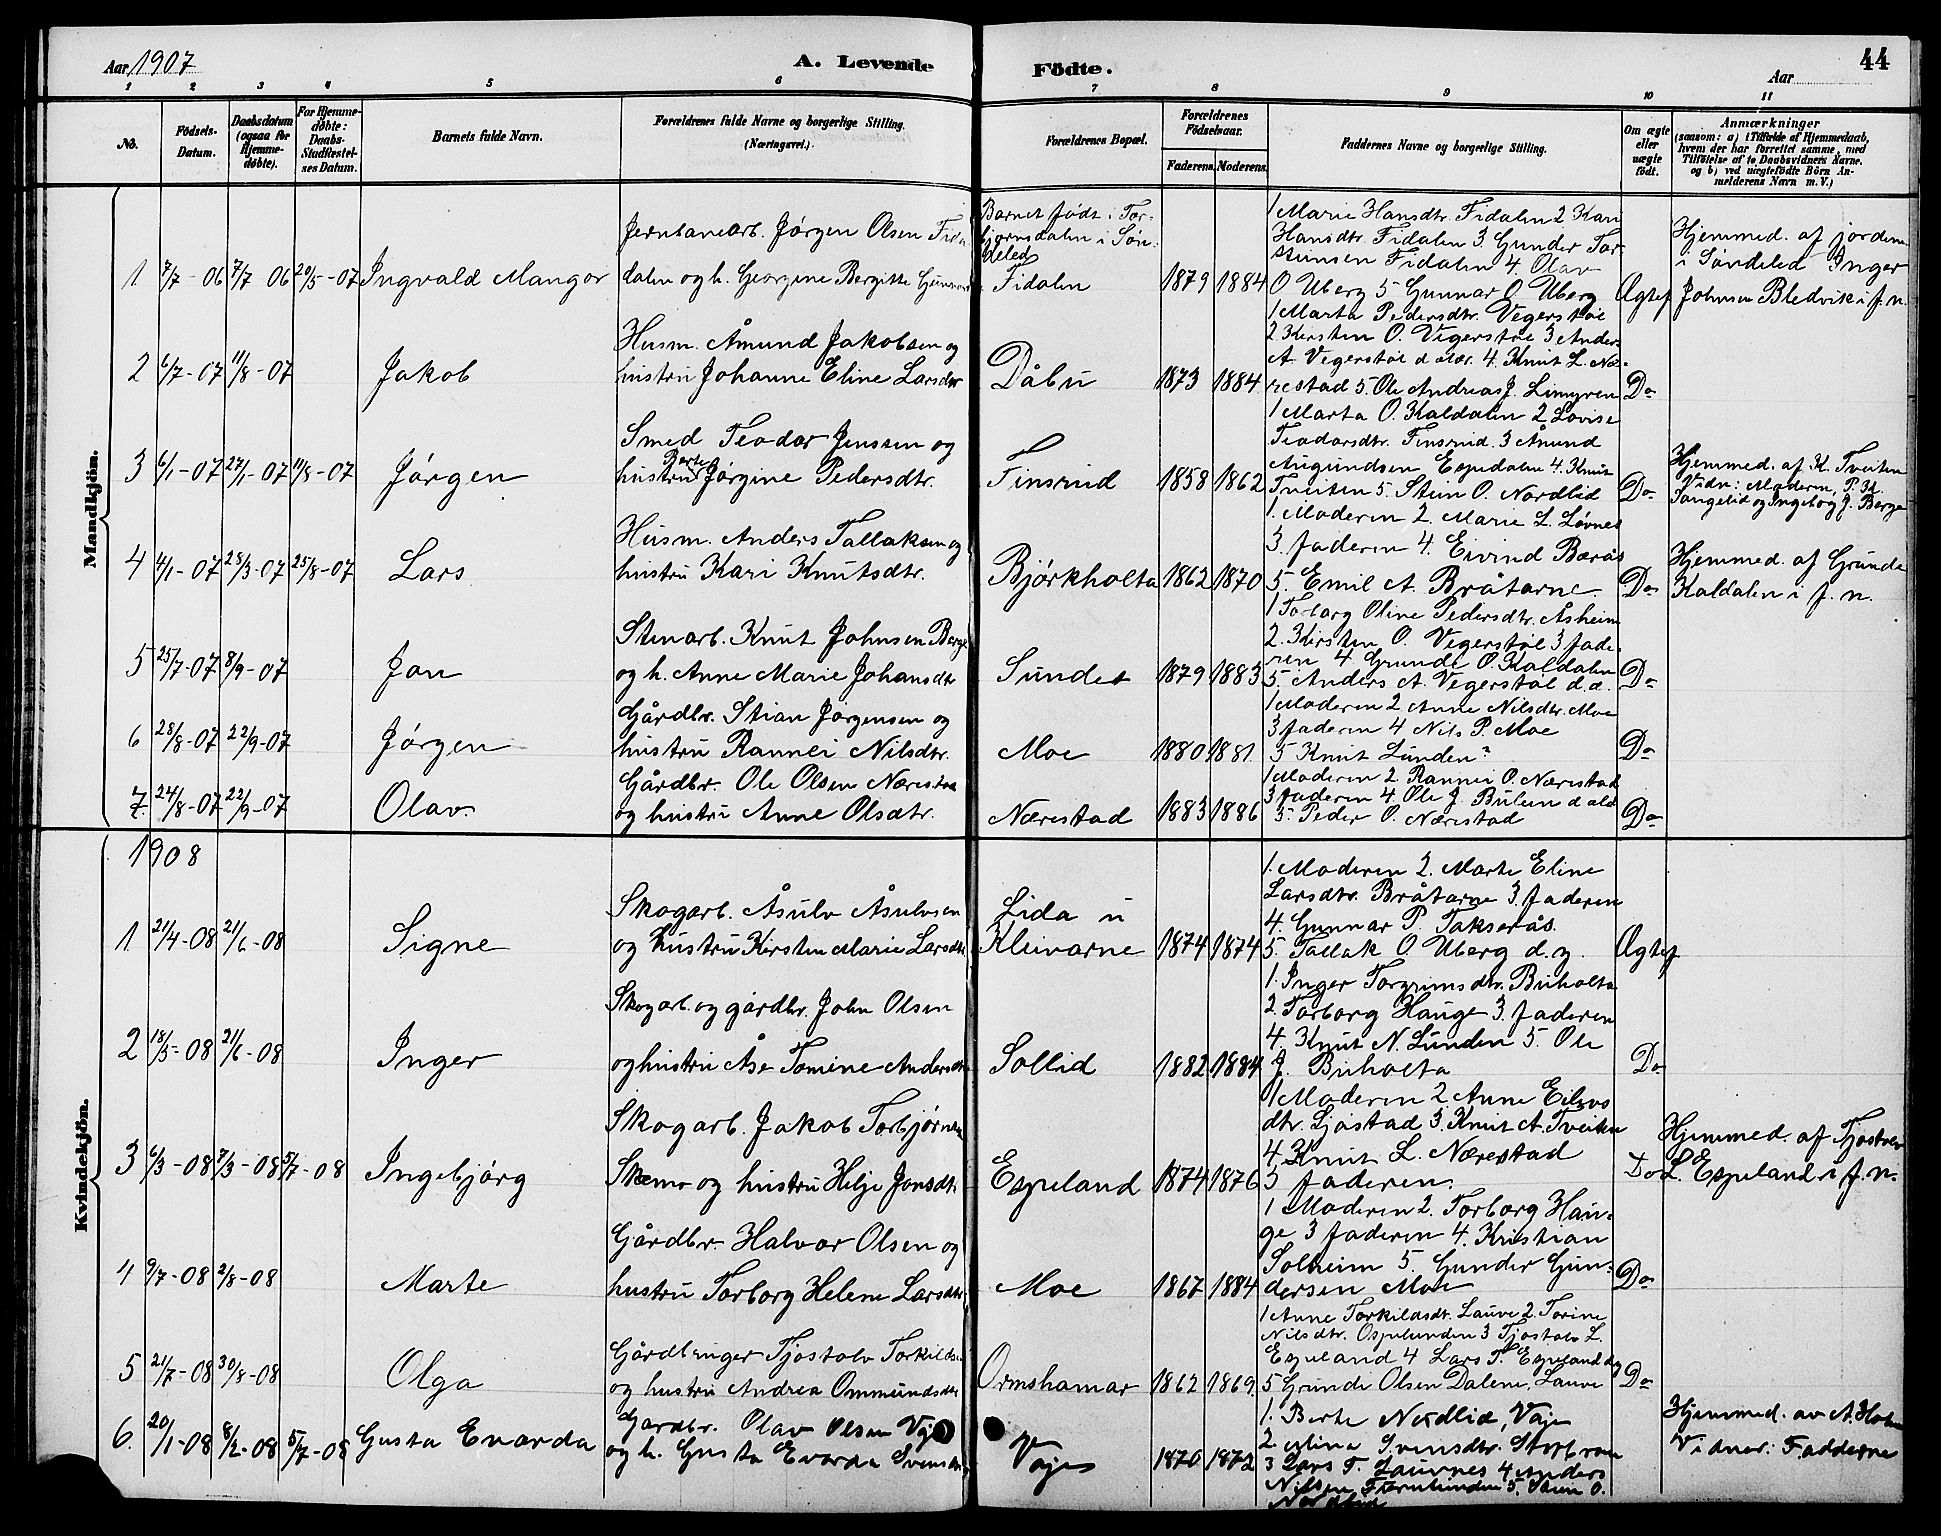 Aar 1907
A. Levende
Födte.
Aar
44
1 2 3 4 5 6 7 8 9 10 11
No.
Födsels-
Datum.
Daabsdatum
(ogsaa for
Hjemme-
døbte).
For Hjemme-
døbte:
Daabs-
Stadfæstel-
ses Datum.
Barnets fulde Navn.
Forældrenes fulde Navne og borgerlige Stilling.
(Næringsvei.)
Forældrenes Bopæl.
Forældrenes
Födselsaar.
Faderens. Moderens.
Faddernes Navne og borgerlige Stilling.
Om ægte
eller
uægte
födt.
Anmærkninger
(saasom: a) i Tilfælde af Hjemmedaab,
hvem der har forrettet samme, med
Tilföielse af to Daabsvidners Navne.
og b) ved uægtefödte Börn An-
melderens Navn m. V.)
Mandkjön.
1 7/7-06 7/7 06 20/5-07 Ingvald Mangor
Jernbanearb. Jórgen Olsen Fida
dalen og h. Georgine Bergitte
Barnet født i Tor-
bjørnsdalen i Søn-
deled
Fidalen 1879 1884
1 Marie Hansdtr. Fidalen 2 Kari
Hansdtr. Fidalen 3. Gunder Tor-
steinsen Fidalen 4. Olav
O Uberg 5 Gunnar O. Uberg
Ægtef
Hjemmed. af jordem.
i Søndeled Inger
Johnsen Bledvik i J. n.
2 6/7-07 11/8-07 Jakob
Husm. Åmund Jakobsen og
hustru Johanne Eline Larsdtr
Dåbu 1873 1884
1 Marta Pedersdtr. Vegerstøl
2 Kirsten O. Vegerstøl 3 Anders
A. Vegerstøl d. eldr. 4. Knut L. Næ-
restad 5. Ole Andreas J. Limyren
Do
3 6/1-07 27/1-07 11/8-07 Jórgen
Smed Teodor Jenssen og
hustru Berte Jórgine Pedersdtr.
Finsrud 1858 1862
1 Marta O. Kaldalen 2 Lovise
Teodorsdtr. Finsrud. 3 Åmund
Augundsen Espedalen 4. Knut
Tveiten 5. Stein O. Nordlid
Do
Hjemmed. af K. Tveiten
Vidn: Moderen, P. K.
Songelid og Ingeborg J. Berge
4 4/1-07 23/3-07 25/8-07 Lars
Husm. Anders Tallaksen og
hustru Kari Knutsdtr.
Bjørkholta 1862 1870
1. Moderen 2. Marie L. Løvnes
3. faderen 4. Eivind Berås
5. Emil A. Bråtarne.
Do
Hjemmed. af Grunde
Kaldalen i J. n.
5 25/7-07 8/9-07 Jon
Stenarb. Knut Johnsen Berge
og h. Anne Marie Johansdtr
Sundet 1879 1883
1 Torborg Oline Pedersdtr. Åsheim
2. Kirsten O. Vegerstøl 3 fade-
ren 4 Grunde O. Kaldalen
5. Anders A. Vegerstøl d. æ.
Do
6 28/8-07 22/9-07 Jórgen
Gårdbr. Stian Jørgensen og
hustru Rannei Nilsdtr.
Moe 1880 1881.
1 Moderen 2 Anne Nilsdtr. Moe
3 faderen 4 Nils P. Moe
5 Knut Lunden
Do
7. 24/8-07 22/9-07 Olav.
Gårdbr. Ole Olsen Nærestad
og hustru Anne Olsdtr.
Nærestad 1883 1886
1 Moderen 2 Rannei O. Nærestad
3 faderen 4 Ole J. Buleen d ald
5. Peder O. Nærestad
Do
1908
Kvindekjön.
1 21/4-08 21/6-08 Signe
Skogarb. Åsulv Åsulvsen
og hustru Kirsten Marie Larsdtr
Lida u
Kleivarne 1874 1874
1. Moderen 2. Marte Eline
Larsdtr. Bråtarne 3. faderen
4. Gunnar P. Takserås.
5. Tallak O. Uberg d. y.
Ægtef
2 18/5-08 21/6-08 Inger
Skogarb. og gårdbr. John Olsen
og hustru Åse Tomine Andersdtr
Sollid 1882 1884
1. Inger Torgrimsdtr. Buholta
2. Torborg Hauge 3. faderen
4. Knut N. Lunden 5. Ole
J. Buholta
Do
3 6/3-08 7/3-08 5/7-08 Ingebjórg
Skogarb. Jakob Torbjørnsen
Skemo og hustru Helje Jonsdtr
Espeland 1874 1876
1 Moderen 2 Anne Eilevs
dtr. Ljøstad 3. Knut A. Tveiten
4. Knut L. Nærestad
5 faderen.
Do
Hjemmed. af Tjøstolv
L. Espeland i J. n.
4 9/7-08 2/8-08 Marte
Gårdbr. Halvor Olsen og
hustru Torborg Helene Larsdtr.
Moe 1867 1884
1 Moderen 2. Torborg Hau-
ge 3 faderen 4. Kristian
Solheim 5. Gunder Gun-
dersen Moe
Do
5 21/7-08 30/8-08 Olga
Gårdbruger Tjøstolv Torkildsen
og hustru Andrea Ommundsdtr
Ormshamar 1862 1869
1 Anne Torkildsdtr. Lauve 2. Torine
Nilsdtr. Ospelunden 3 Tjøstolv L.
Espeland 4 Lars T. Espeland dy
5 Grunde Olsen Dalene, Lauve
Do
6. 20/1-08 8/2-08 5/7-08 Gusta Evarda
Gardbr. Olav Olsen Vaje
og h. Gusta Evarda Svensdtr
Vaje 1870 1872
1. Berte Nordlid, Vaje
2 Svensdtr.
3 Lars T. Lauvnes 4 Anders
Nilsen 5. Stein O.
Nordlid
Hjemmed. av A.
Vidner: Fadderne